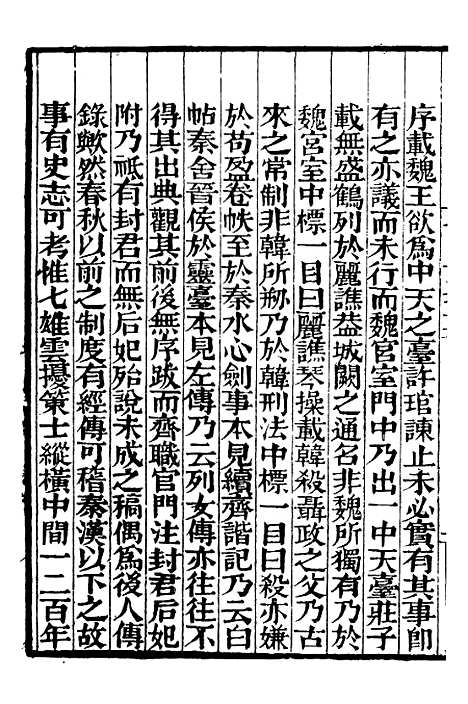 序載魏王欲爲中天之臺許琯諫止未必實有其事卽
有之亦議而未行而魏宮室門中乃出一中天臺莊子
載無盛鶴列於麗譙葢城闕之通名非魏所獨有乃於
魏宮室中標一目曰麗譙琴操載韓殺聶政之父乃古
來之常制非韓所剏乃於韓刑法中標一目曰殺亦嫌
於苟盈卷帙至於秦水心劍事本見續齊諧記乃云白
帖秦舍晉侯於靈臺本見左傳乃云列女傳亦往往不
得其出典觀其前後無序跋而齊職官門注封君后妃
附乃祗有封君而無后妃殆說未成之稿偶爲後人傳
錄歟然春秋以前之制度有經傳可稽秦漢以下之故
事有史志可考惟七雄雲擾策士縱橫中間一二百年